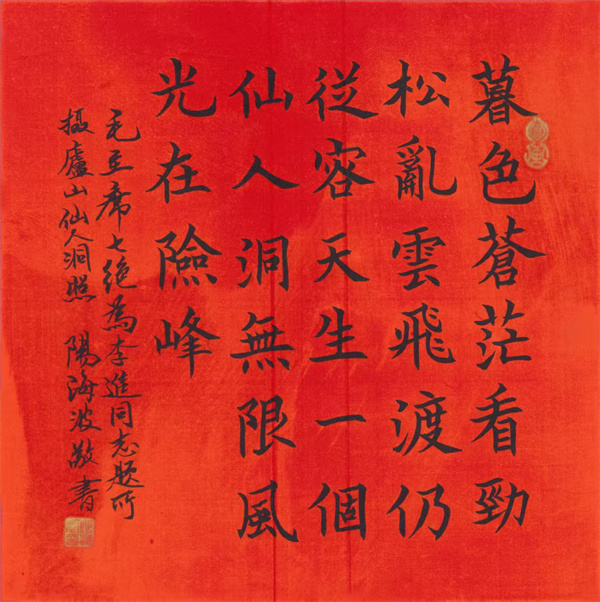 暮色蒼茫看勁
松亂雲飛渡仍
從容天生一個
仙人洞無限風
光在險峰
毛主席七绝為李進同志题所
摄廬山仙人洞照 陽海波敬書